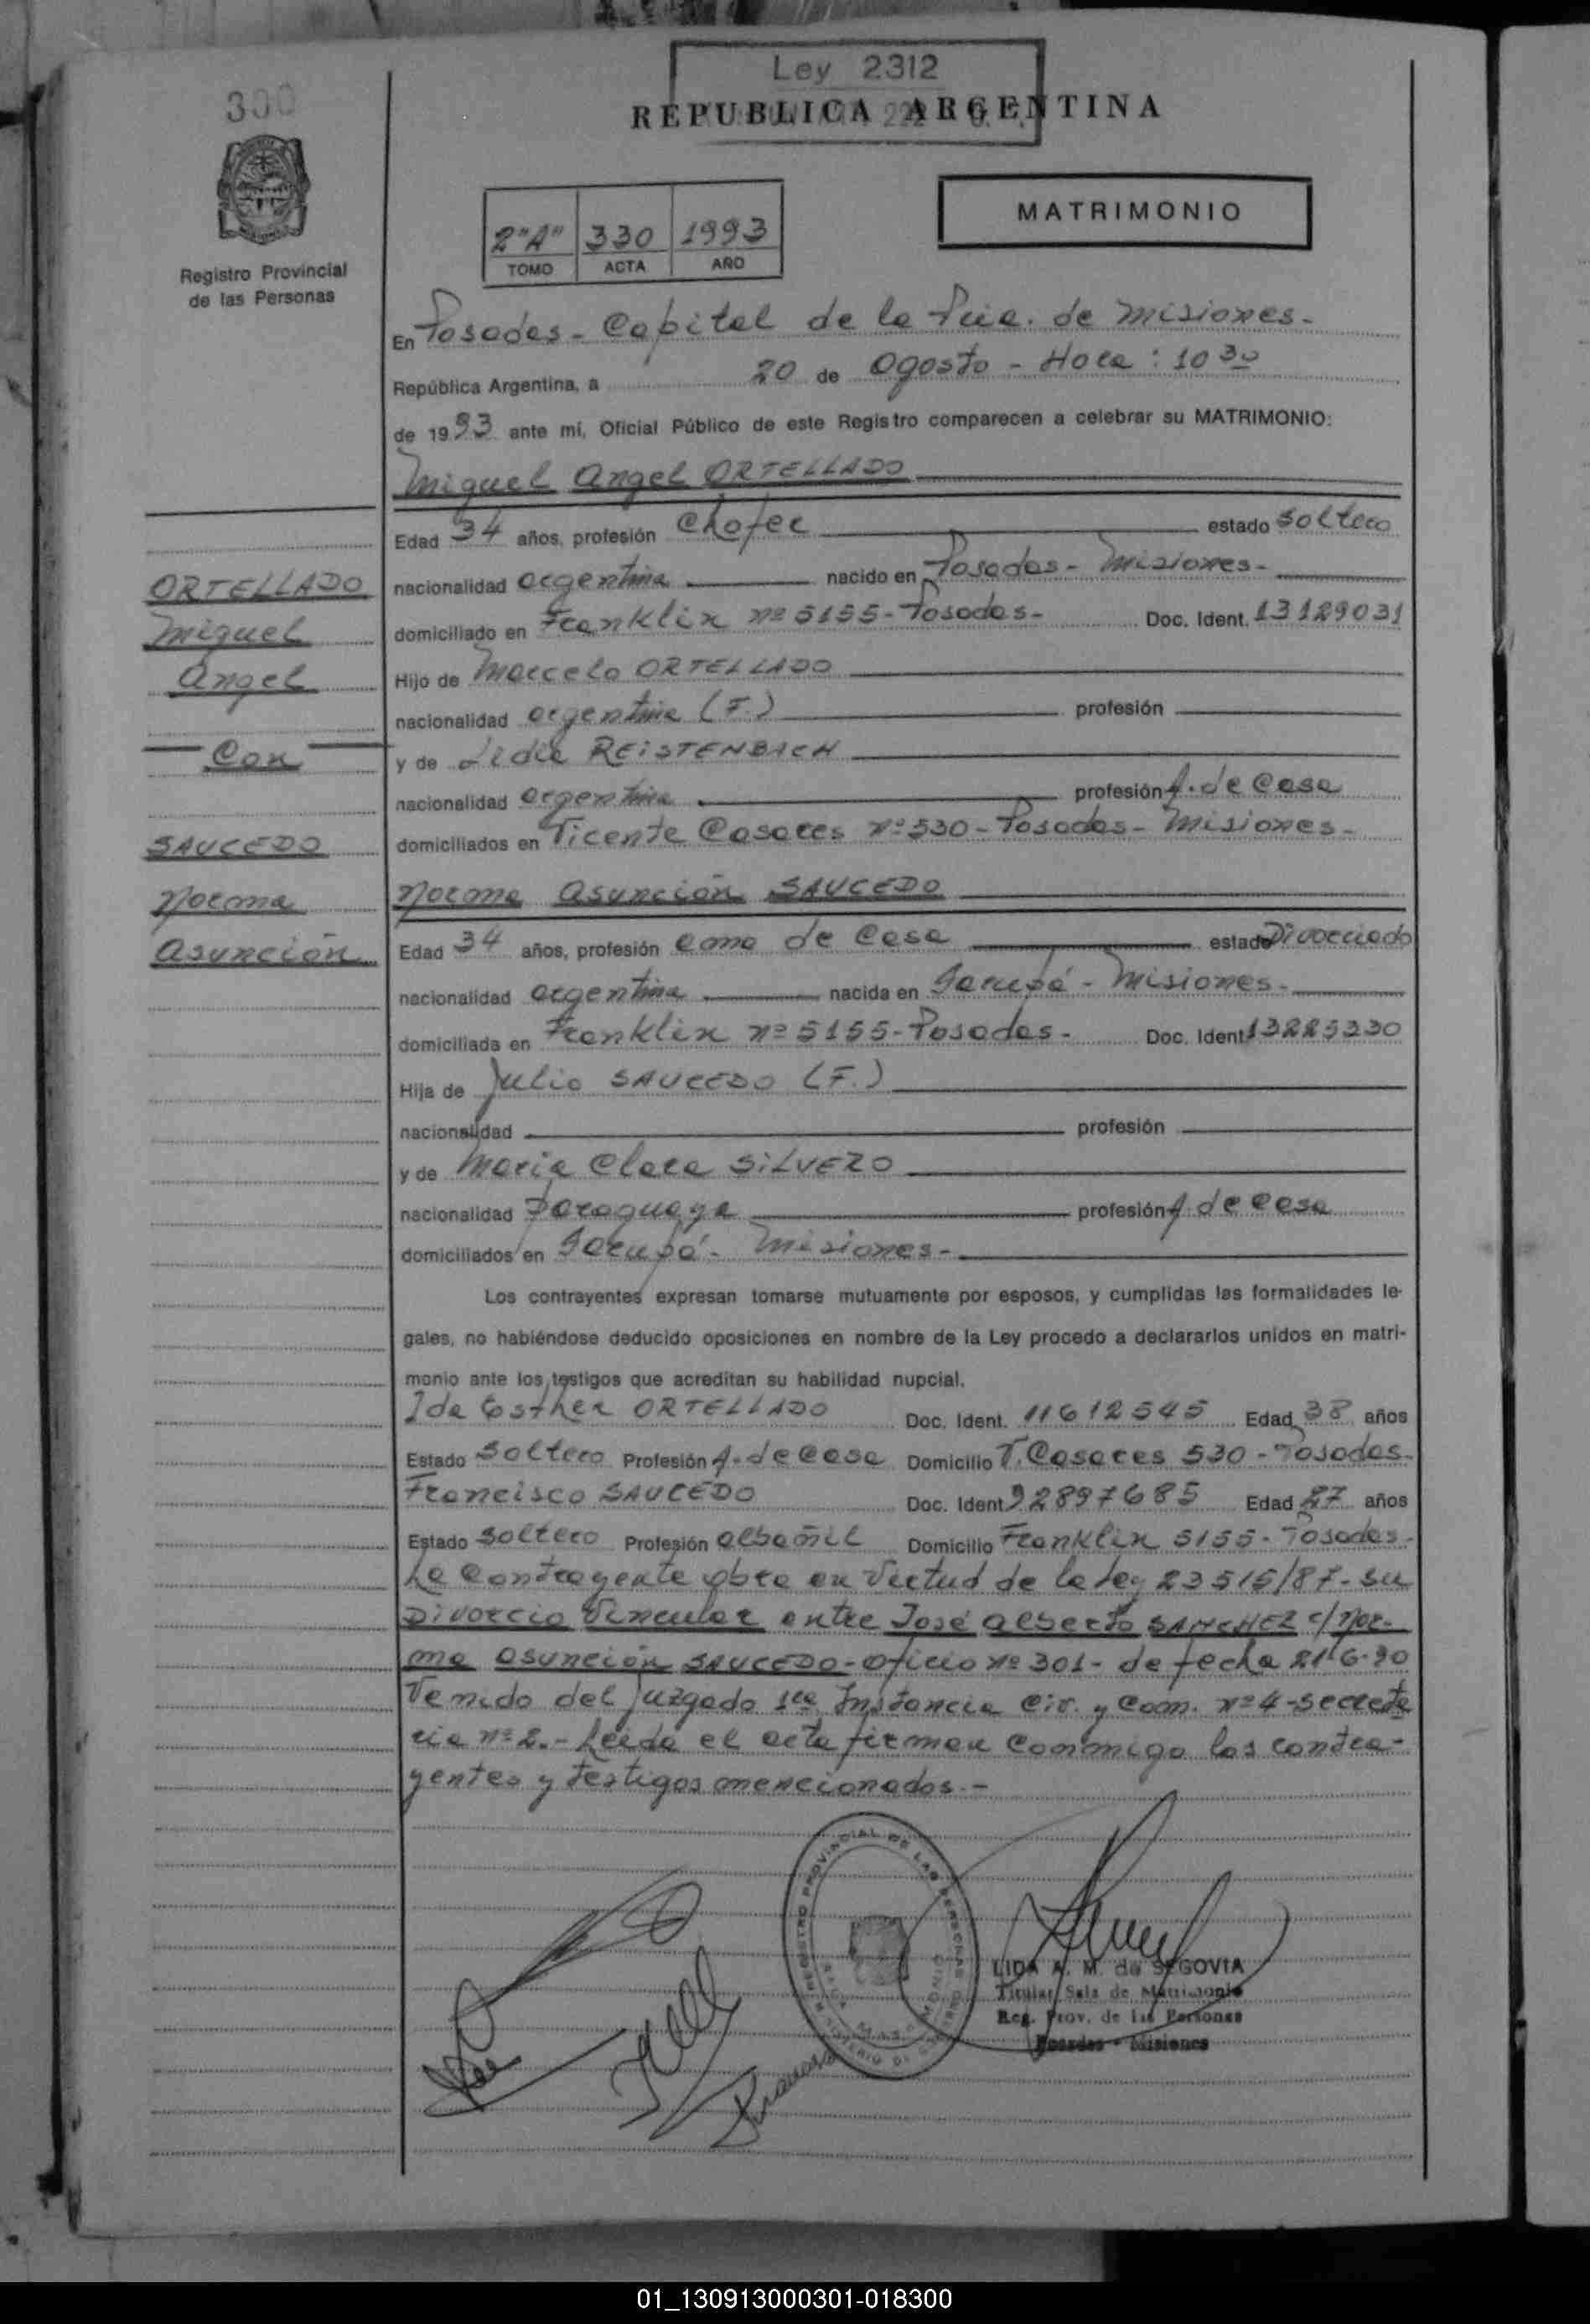 Ley 2312
300
REPUBLICA ARGENTINA
MATRIMONIO
2"A" 330 1993
TOMO ACTA AÑO
Registro Provincial
de las Personas
En Posadas - Capital de la Pcia. de Misiones-
República Argentina, a 20 de Agosto - Hora: 10 30
de 1993 ante mí, Oficial Público de este Registro comparecen a celebrar su MATRIMONIO:
Miguel Angel ORTELLADO
Edad 34 años, profesión Chofer estado Soltero
nacionalidad argentina nacido en Posadas - Misiones-
domiciliado en Franklin nº 5155 - Posadas- Doc. Ident. 13129031
Hijo de Marcelo ORTELLADO
nacionalidad argentina (F.) profesión
y de Lidia REISTENBACH
nacionalidad argentina profesión A. de Casa
domiciliados en Vicente Casares nº 530 - Posadas - Misiones-
ORTELLADO
Miguel
Angel
Con
SAUCEDO
Norma
Asunción
Norma Asunción SAUCEDO
Edad 34 años, profesión ama de Casa estado Divorciada
nacionalidad argentina nacida en Garupá - Misiones-
domiciliada en Franklin nº 5155 - Posadas- Doc. Ident. 13225330
Hija de Julio SAUCEDO (F.)
nacionalidad profesión
y de Maria Clara SILVERO
nacionalidad Paraguaya profesión A. de Casa
domiciliados en Garupá - Misiones-
Los contrayentes expresan tomarse mutuamente por esposos, y cumplidas las formalidades le-
gales, no habiéndose deducido oposiciones en nombre de la Ley procedo a declararlos unidos en matri-
monio ante los testigos que acreditan su habilidad nupcial.
Ida Esther ORTELLADO Doc. Ident. 11612545 Edad 38 años
Estado Soltera Profesión A. de Casa Domicilio V. Casares 530 - Posadas-
Francisco SAUCEDO Doc. Ident. 92897685 Edad 27 años
Estado Soltero Profesión albañil Domicilio Franklin 5155 - Posadas-
La Contrayente obra en Virtud de la Ley 23515/87 - su
Divorcio Vincular entre José Alberto SANCHEZ c/ Nor-
ma Asunción SAUCEDO - Oficio nº 301 - de fecha 21-6-90
Venido del Juzgado 1ra Instancia Civ. y Com. nº 4 - Secreta
ria nº 2.- Leída el acta firman conmigo los contra-
yentes y testigos mencionados.-
REGISTRO PROVINCIAL DE LAS PERSONAS
LIDA A. M. de SEGOVIA
Titular Sala de Matrimonio
Reg. Prov. de las Personas
Posadas - Misiones
01_130913000301-018300